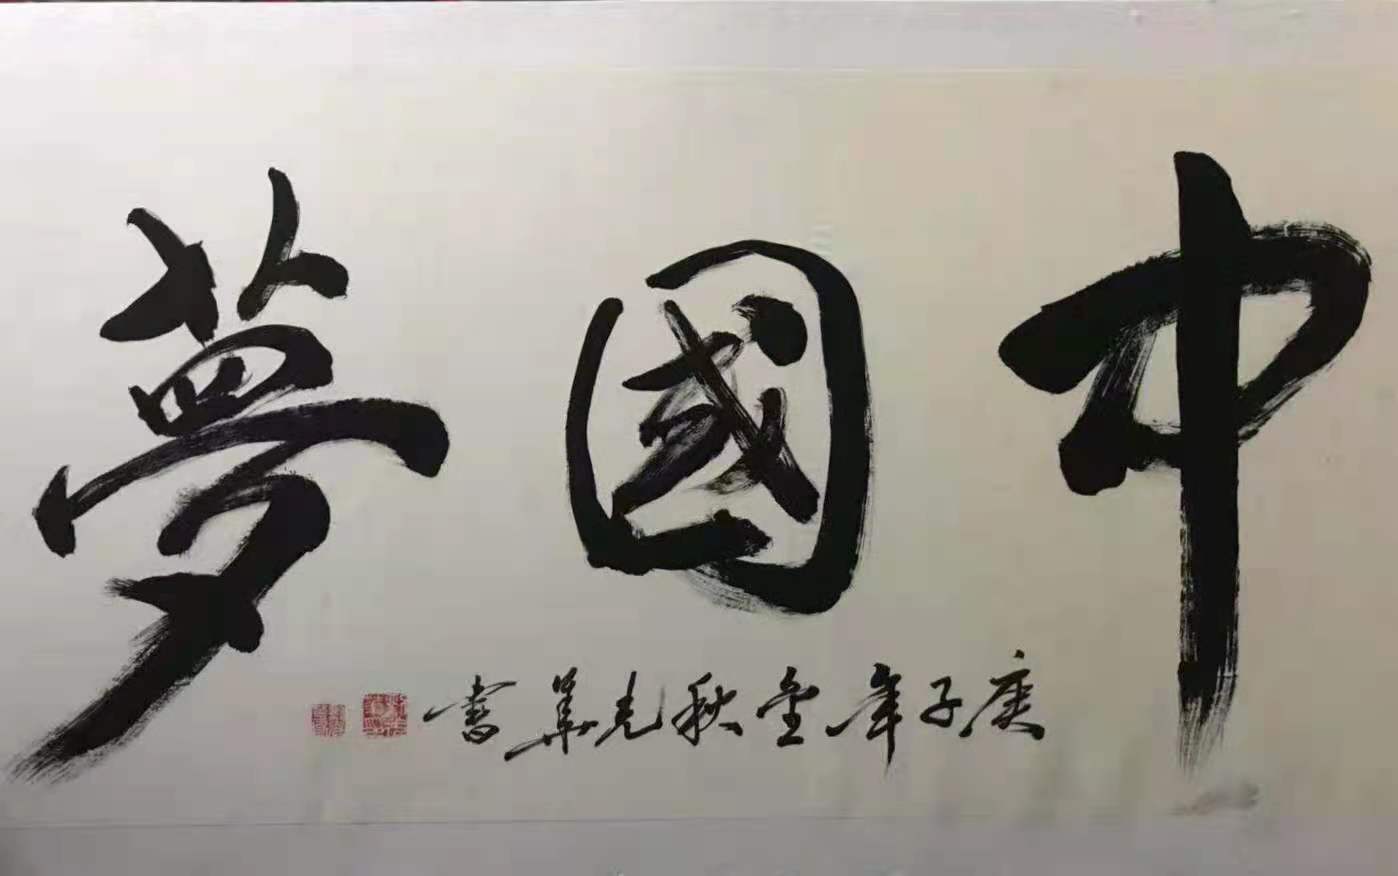 中國夢
庚子年金秋克華書